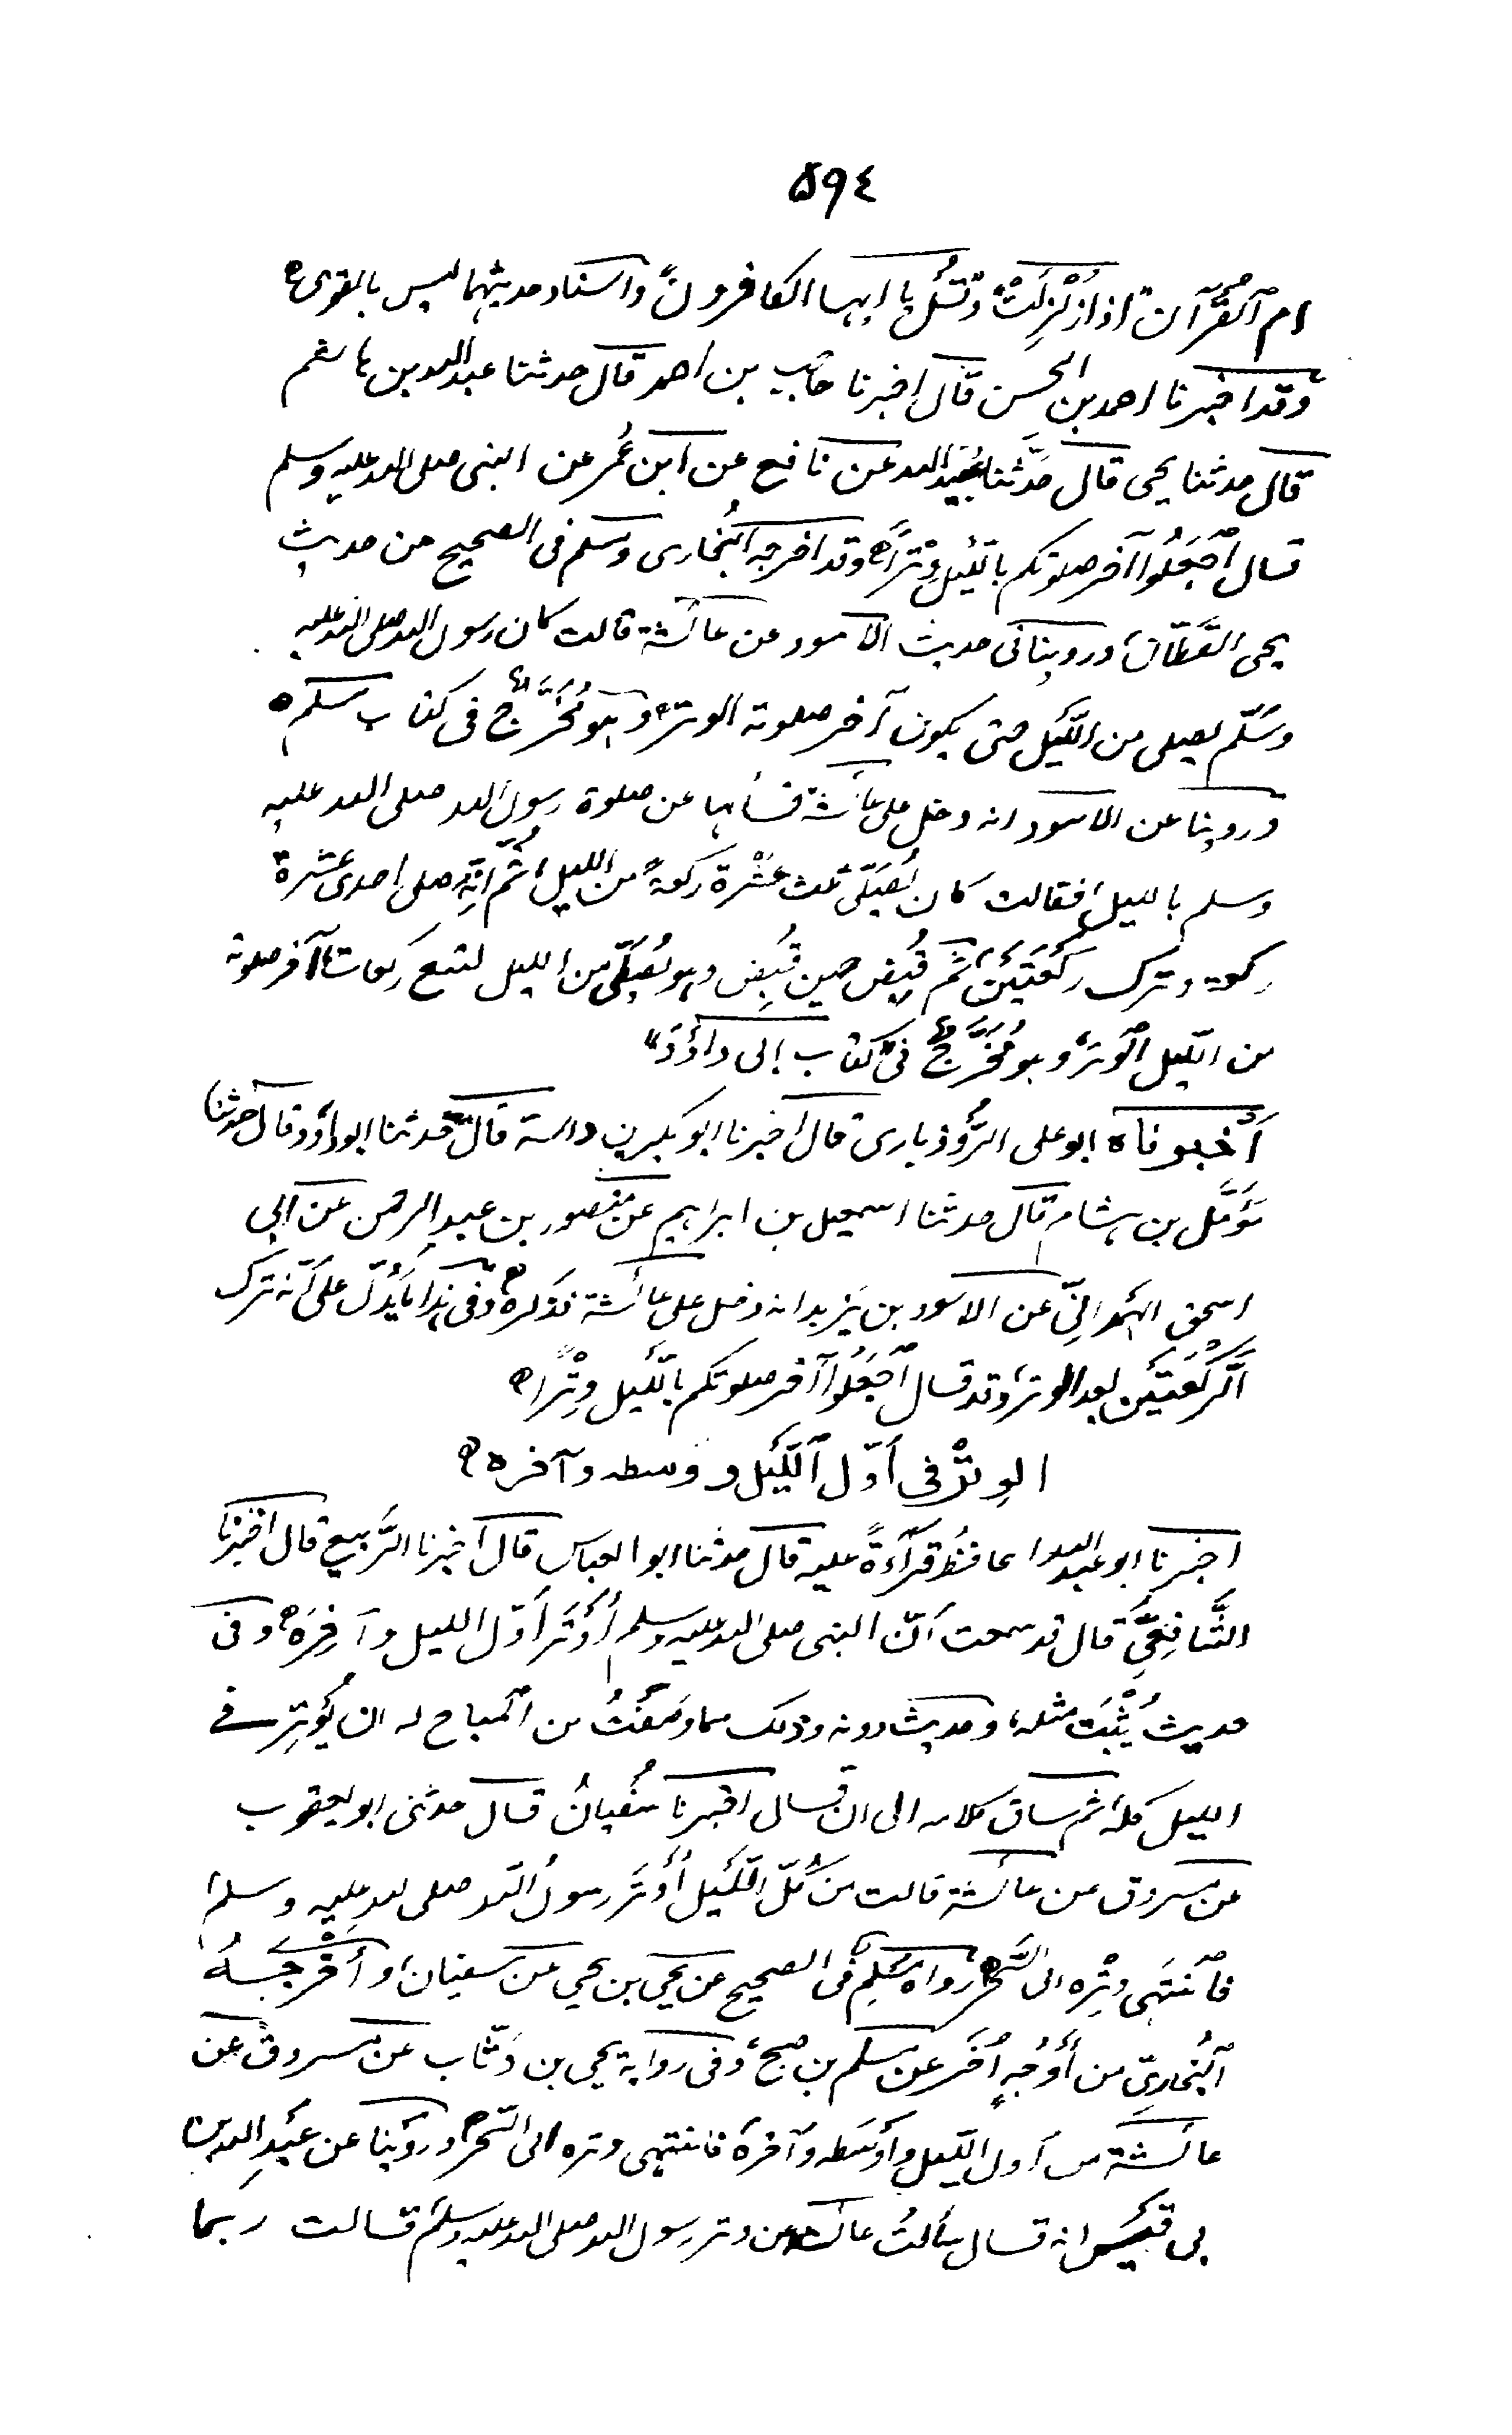 ٥٩٤
ام القرآن اذا زلزلت وقل يا ايها الكافرون واسناد حديثهما ليس بالقوى
وقد اخبرنا احمد بن الحسن قال اخبرنا حاجب بن احمد قال حدثنا عبد الله بن هاشم
قال حدثنا يحيى قال حَدَّثنا عُبَيد الله عن نافع عن ابن عُمر عن النبى صلى الله عليه وسلم
قال اجْعَلُوا آخر صلوتكم بالَّليلِ وِتْرًا وقد اخرجه البُخارى ومسلم فى الصحيح من حديث
يحيى القَطّان وروينا فى حديث الاسود عن عائشة قالت كان رسول الله صلى الله عليه
وسَلّم يصلى من اللَّيل حتى يكون آخر صلوته الوتر وهو مُخَرَّج فى كتاب مسلم
وروينا عن الاسود انه دخل على عائشة فسألها عن صلوة رسول الله صلى الله عليه
وسلم بالليل فقالت كان يُصَلّى ثلث عَشْرة ركعةً من الليل ثُم انه صلى احدى عشرة
ركعة وترك ركْعَتَيْن ثم قُبِض حين قُبِض وهو يُصَلّى من الليل لتسع ركعات آخر صلوته
من الليل الوتر وهو مُخَرَّج فى كتاب ابى داوُدَ
أخبرناه ابو على الرُّوذبارى قال اخبرنا ابو بكر بن داسة قال حدثنا ابو داود قال حدثنا
مؤَمَّل بن هشام قال حدثنا اسمعيل بن ابراهيم عن منصور بن عبد الرحمن عن ابى
اسحق الهَمدانىّ عن الاسود بن يَزيد انه دخل على عائشة فذكره وفى هذا ما يَدُلّ على أنّه ترك
الرَّكْعَتَيْن بعد الوتر وقد قال اجْعَلُوا آخر صلوتكم بالَّليل وِتْرًا
الوِتْر فى أوّل الَّليل و وسطه وآخره
اخبرنا ابو عبد الله الحافظ قِرآءةً عليه قال حدثنا ابو العباس قال اخبرنا الرَّبيع قال اخبرنا
الشَّافِعِىّ قال قد سمعت أنّ النبى صلى الله عليه وسلم أوْتَر أوّل الليل وآخِرَه وفى
حديث يُثْبَت مثله وحديث دونه وذلك مما وَصَفْتُ من المباح له ان يُوتِر فى
الليل كله ثم ساق كلامه الى ان قال اخبرنا سُفْيانُ قال حدثنى ابو يعقوب
عن مسروق عن عائشة قالت مِن كُلّ اللَّيل أوْتَر رسول الله صلى الله عليه وسلم
فانْتَهى وِتْره الى السَّحَر رواه مُسْلِم فى الصحيح عن يحيى بن يحيى عن سفيان وأخْرَجَهُ
البُخارِىّ من أوْجُهٍ أُخَر عن مسلم بن صبح وفى رواية يحيى بن وَثّاب عن مسروق عن
عائشة من أول الَّليل وأوسَطه وآخره فانتهى وتره الى السَّحر ورَوَيْنا عن عَبْدِ الله بن
ابى قَيْس انه قال سألتُ عائشة عن وتر رسول الله صلى الله عليه وسلم قالت ربما